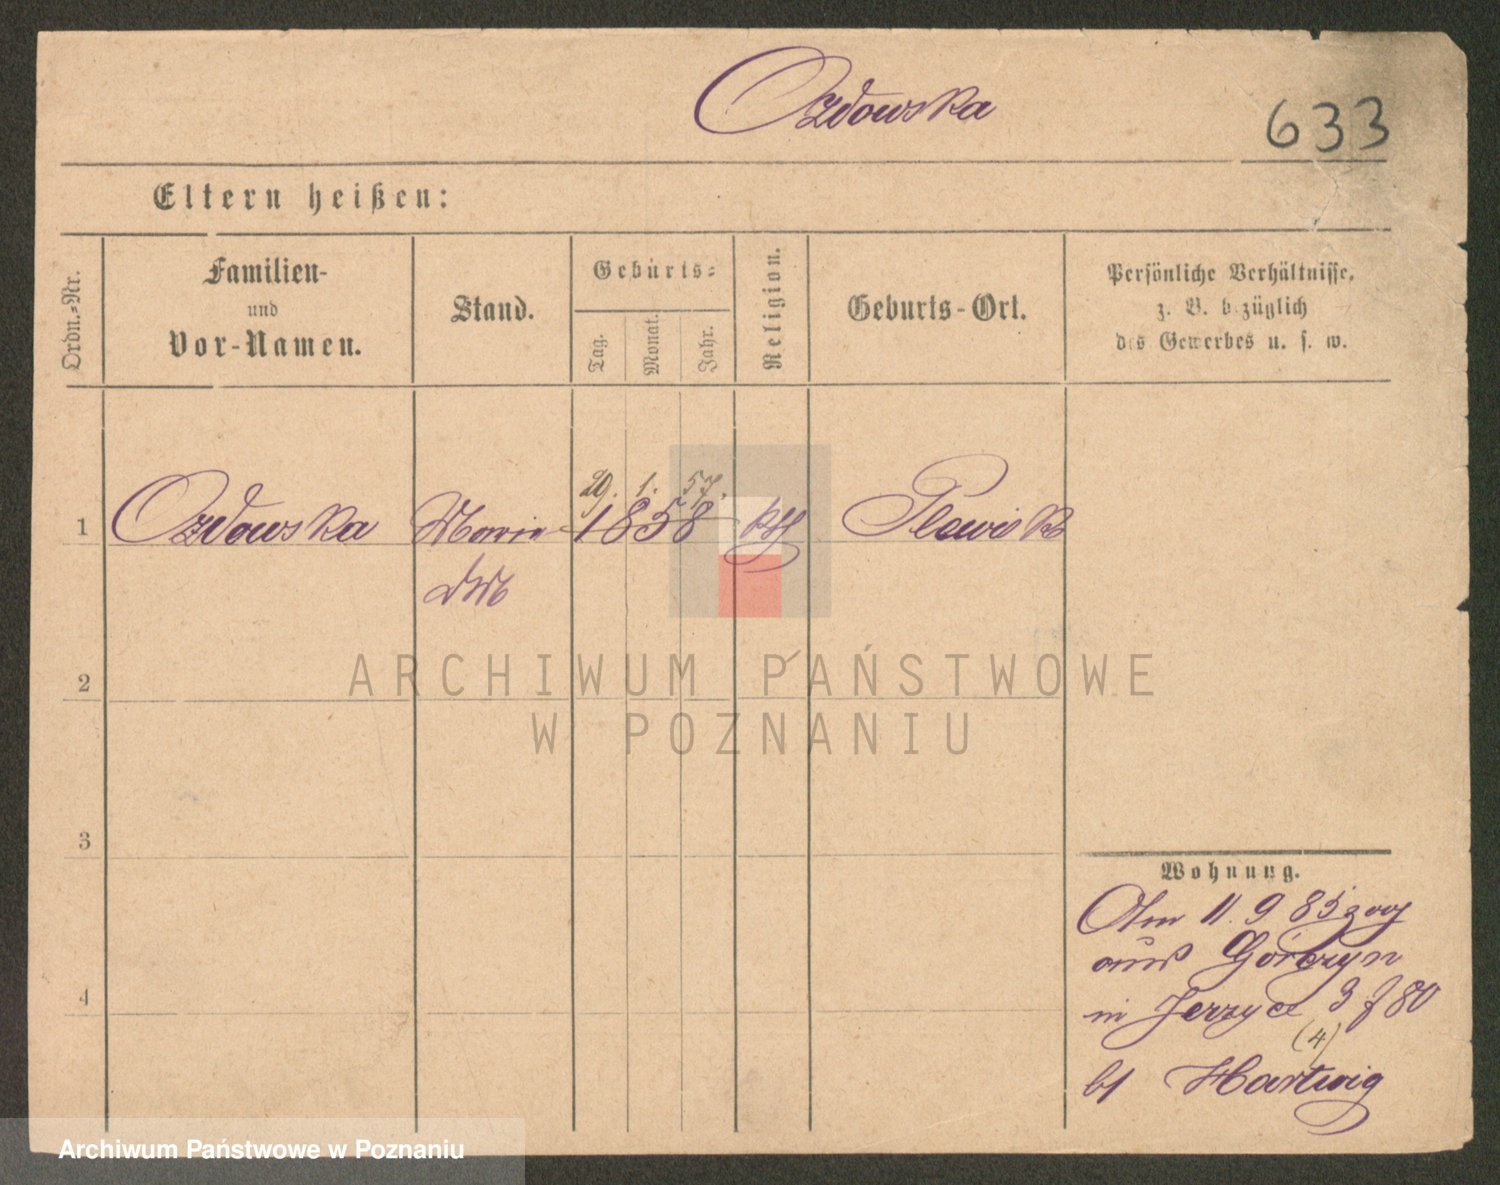 Ozdowska
633
Eltern heißen:
Ordn.-Nr.
Familien-
und
Vor-Namen.
Stand.
Geburts-
Tag.
Monat.
Jahr.
Religion.
Geburts-Ort.
Persönliche Verhältnisse,
z. B. bezüglich
des Gewerbes u. s. w.
29. 1. 57.
1 Ozdowska Maria 1858 kth
2
3
4
Wohnung.
Am 11. 9 85 zog
aus Górczyn
in Jerzyce 3 f 80
(4)
bf Hartwig
ARCHIWUM PAŃSTWOWE
W POZNANIU
Archiwum Państwowe w Poznaniu